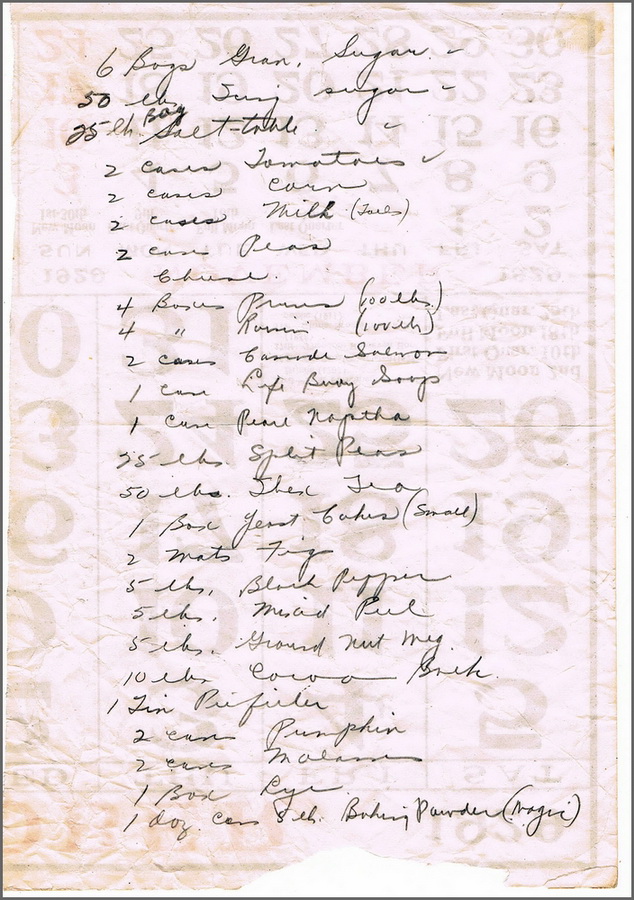 6 Bags Gran. Sugar
50 lbs sugar
25 lb. Bag Salt-table
2 cases Tomatoes
2 cases Corn
2 cases Milk (Talls)
2 cases Peas
Cheese.
4 Boxes Prunes (100 lbs.)
4 " Raisin (100 lb)
2 cases Cascade Salmon
1 case Life Buoy Soap
1 Case Pearl Naptha
25 lbs. Split Peas
50 lbs. Tea
1 Box Yeast Cakes (Small)
2 Mats Figs
5 lbs. Black Pepper
5 lbs. Mixed Peel
5 lbs. Ground Nut Meg.
10 lbs Cocoa Bulk.
1 Tin Piefiller
2 cases Pumpkin
2 cases Molasses
1 Box
1 doz. Cans 8 lb. Baking Powder (Magic)